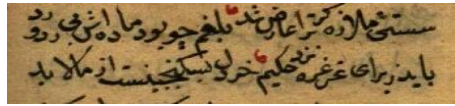 سستئ ملازه کر ترا عارض شد بلغم چو بود ماده اش بی رد رو
باید ز برای غرغره نزد حکیم خردل بسکنجبینت از مالا بد